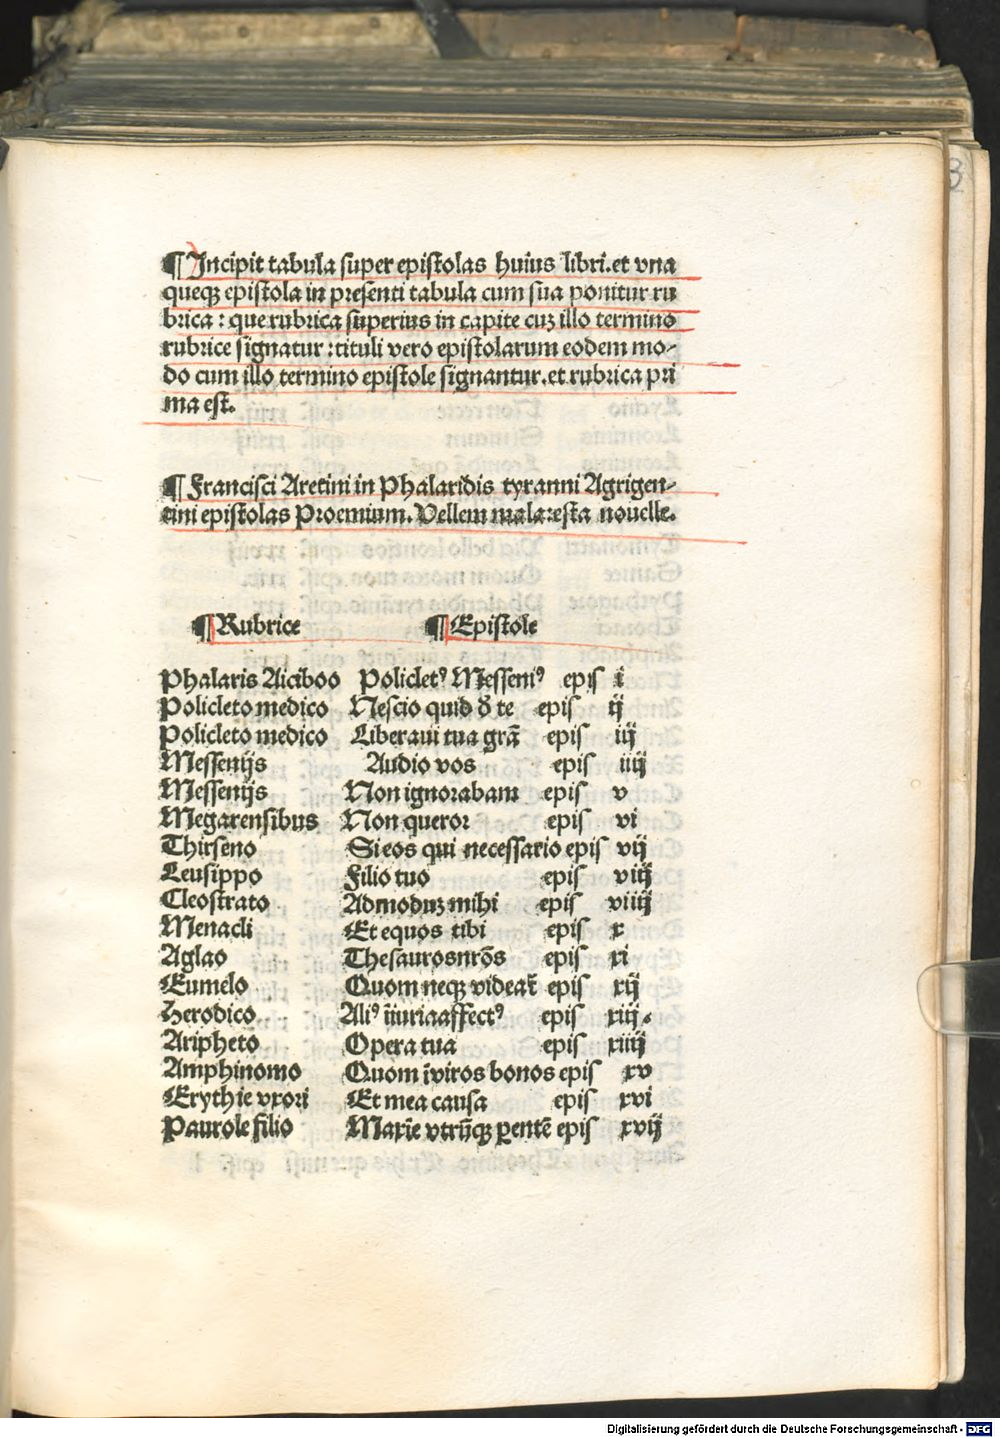 ¶ Incipit tabula super epistolas huius libri. et vna
queqꝫ epistola in presenti tabula cum sua ponitur ru
brica : que rubrica superius in capite cuꝫ illo termino
rubrice signatur : tituli vero epistolarum eodem mo-
do cum illo termino epistole signantur. et rubrica pri
ma est.
¶ Francisci Aretini in Phalaridis tyranni Agrigen-
tini epistolas Proemium. Vellem malatesta nouelle.
¶ Rubrice ¶ Epistole
Phalaris Alciboo Policletꝰ Messeniꝰ epis i
Policleto medico Nescio quid đ te epis ij
Policleto medico Liberaui tua grā epis iij
Messenijs Audio vos epis iiij
Messenijs Non ignorabam epis v
Megarensibus Non queror epis vi
Thirseno Si eos qui necessario epis vij
Leusippo Filio tuo epis viij
Cleostrato Admoduꝫ mihi epis viiij
Menacli Et equos tibi epis x
Aglao Thesauros nr̄os epis xi
Eumelo Quom neqꝫ videat᷑ epis xij
Herodico Aliꝰ iniuria affectꝰ epis xiij.
Aripheto Opera tua epis xiiij
Amphinomo Quom īviros bonos epis xv
Erythie vxori Et mea causa epis xvi
Paurole filio Maxīe vtrūqꝫ ꝑentē epis xvij
Digitalisierung gefördert durch die Deutsche Forschungsgemeinschaft - DFG